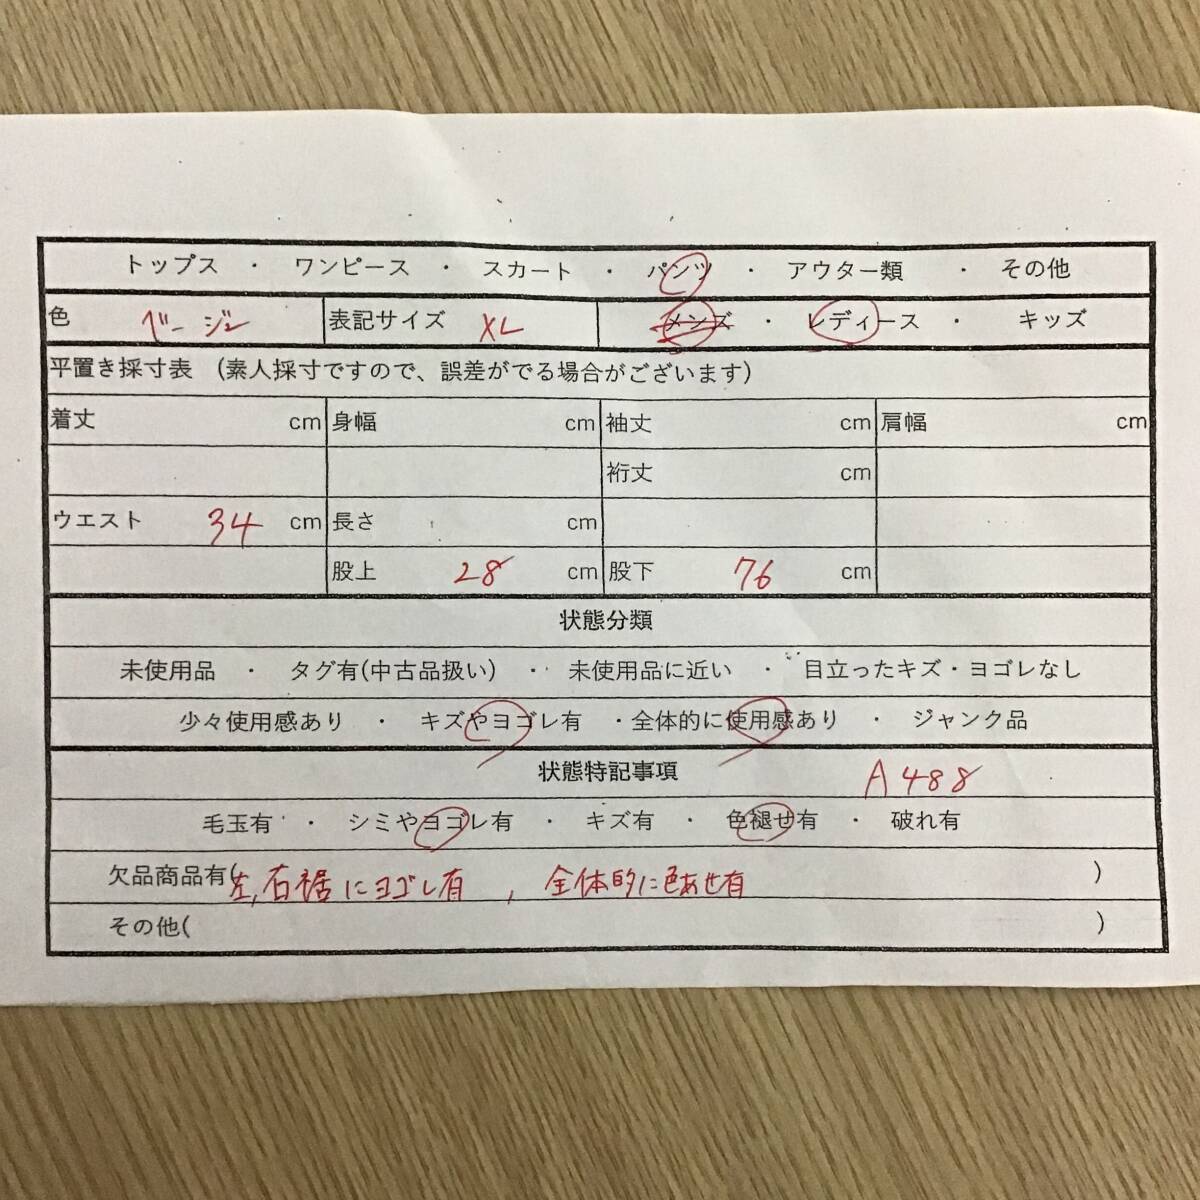 トップス ・ ワンピース ・ スカート ・ パンツ ・ アウター類 ・ その他
色 ベージュ 表記サイズ XL メンズ ・ レディース ・ キッズ
平置き採寸表 (素人採寸ですので、誤差がでる場合がございます)
着丈 cm 身幅 cm 袖丈 cm 肩幅 cm
裄丈 cm
ウエスト 34 cm 長さ cm
股上 28 cm 股下 76 cm
状態分類
未使用品 ・ タグ有(中古品扱い) ・ 未使用品に近い ・ 目立ったキズ・ヨゴレなし
少々使用感あり ・ キズやヨゴレ有 ・全体的に使用感あり ・ ジャンク品
状態特記事項 A488
毛玉有 ・ シミやヨゴレ有 ・ キズ有 ・ 色褪せ有 ・ 破れ有
欠品商品有(左,右裾にヨゴレ有 , 全体的に色あせ有 )
その他( )